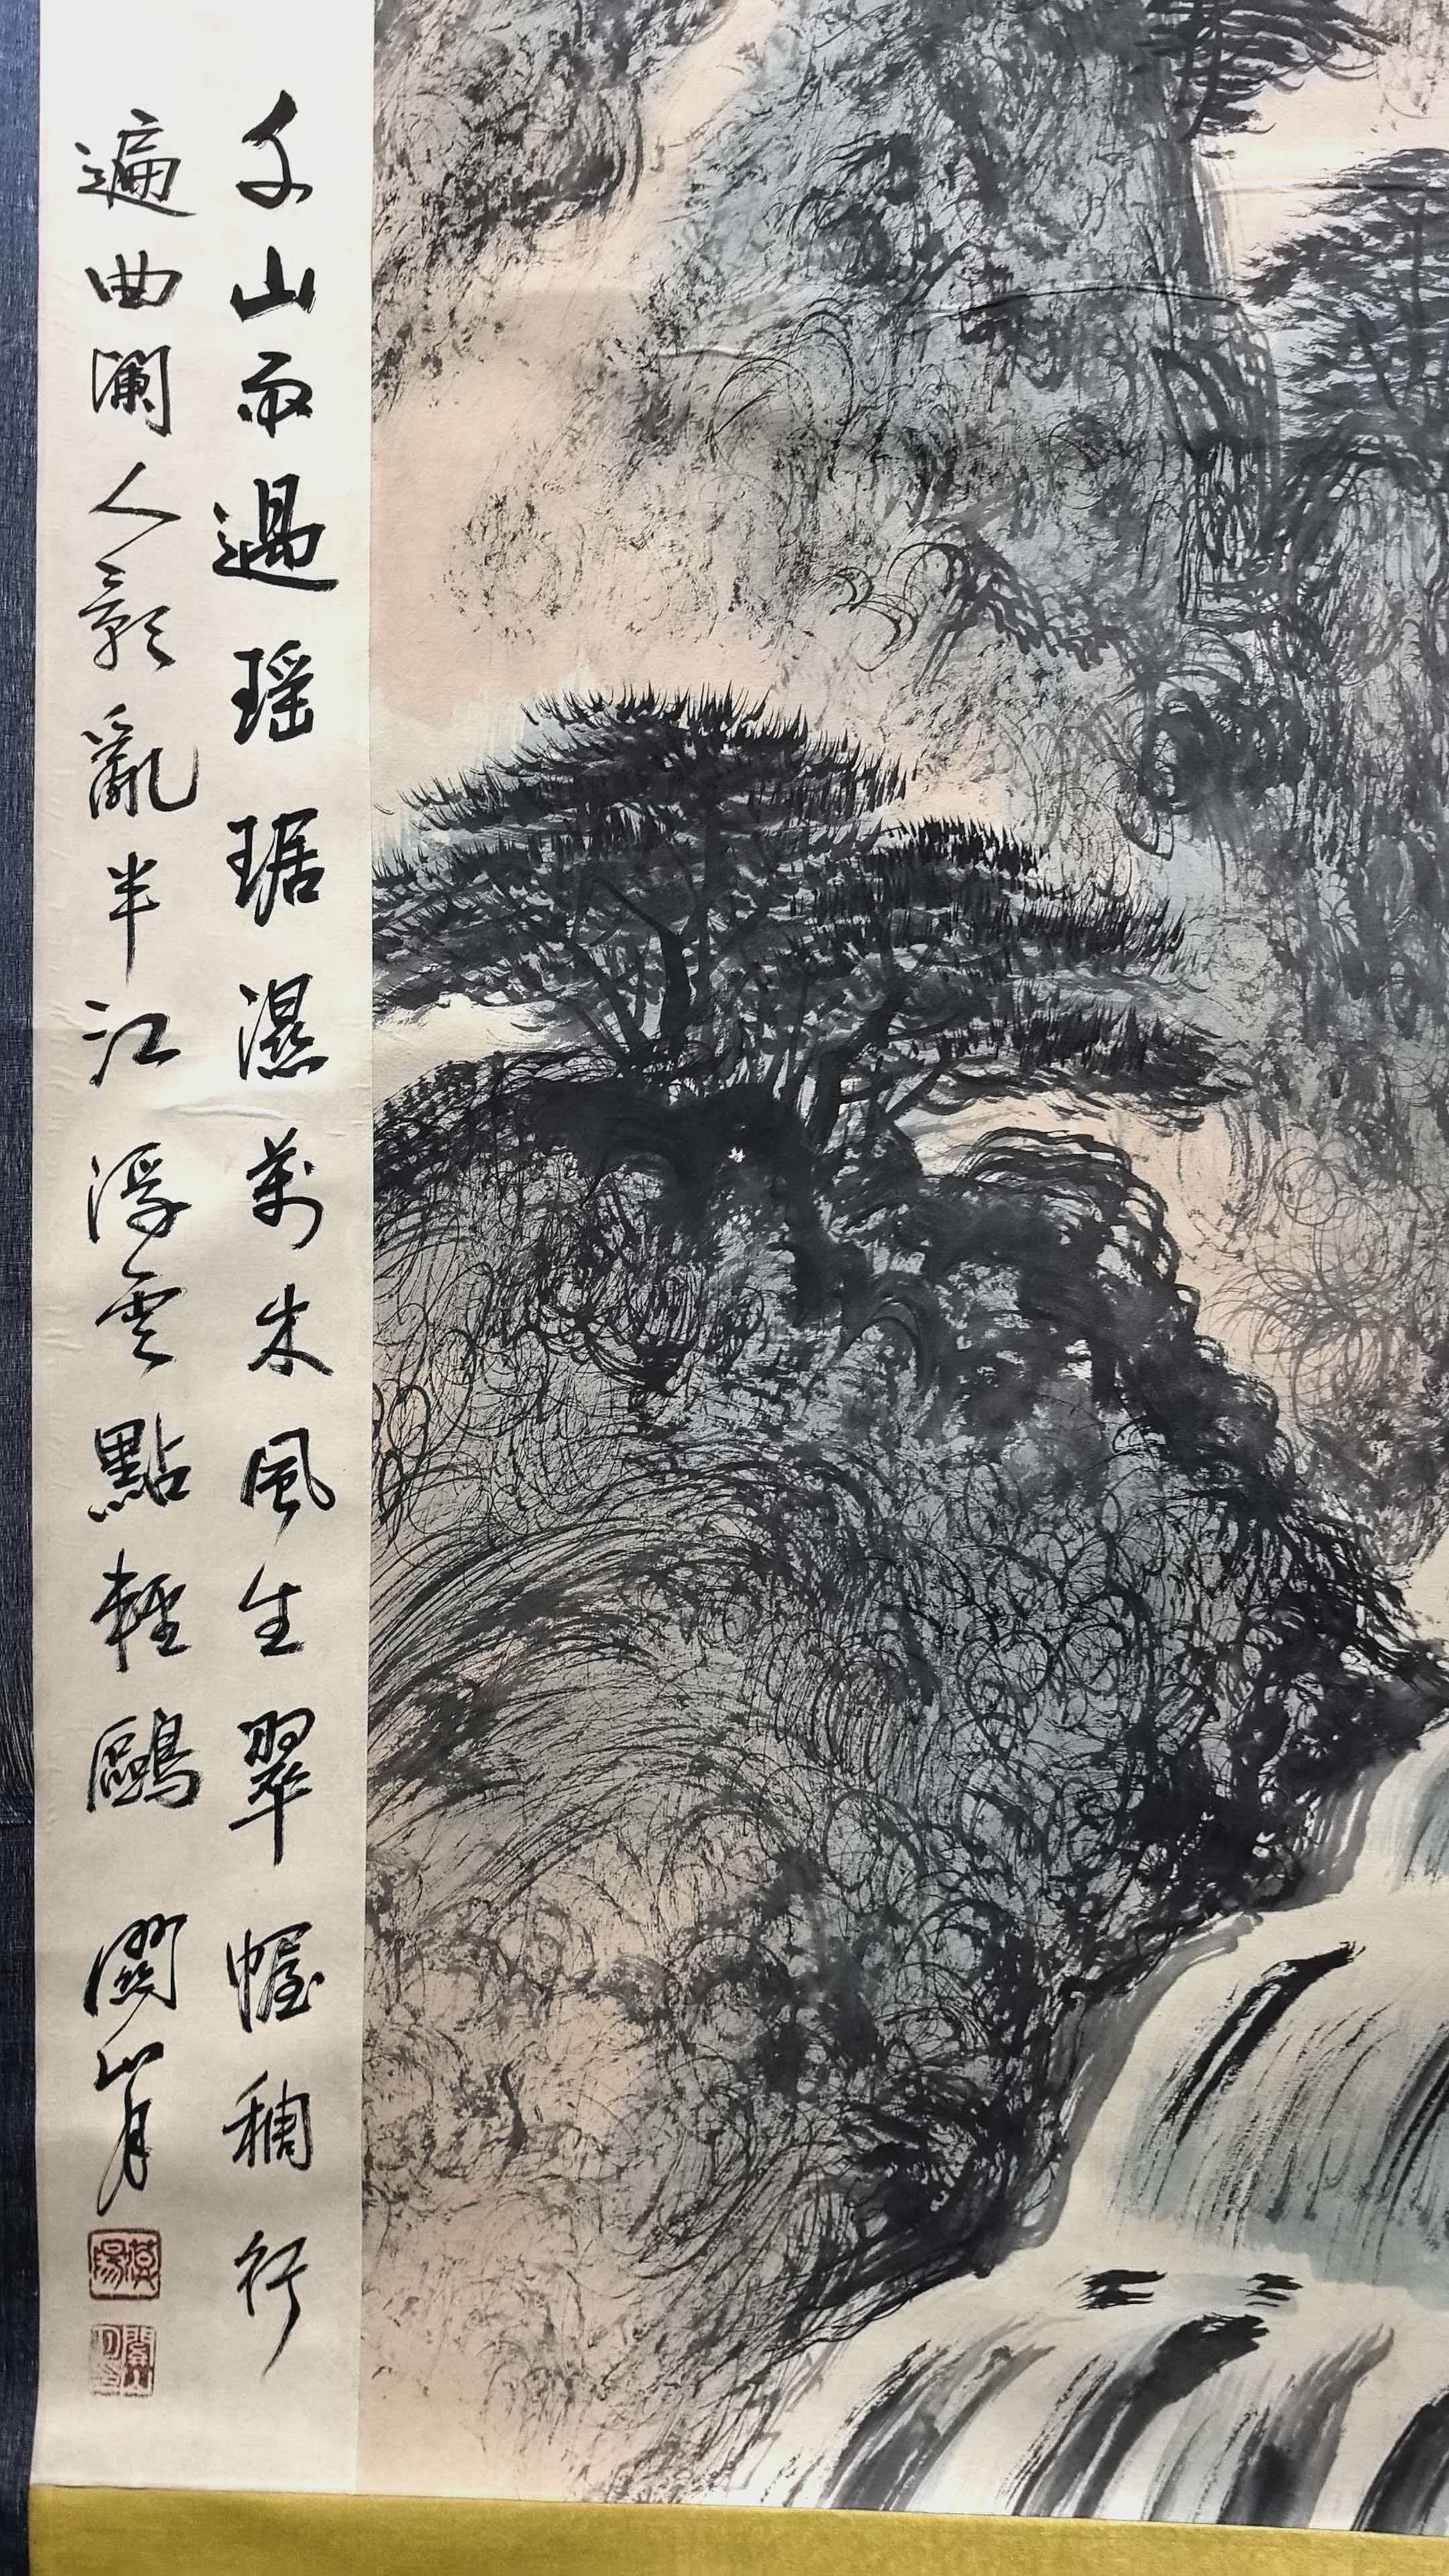 千山雨過瑤琚濕萬木風生翠幄稠行
遍曲瀾人影亂半江浮雲點輕鷗 關山月
漢陽
關山月